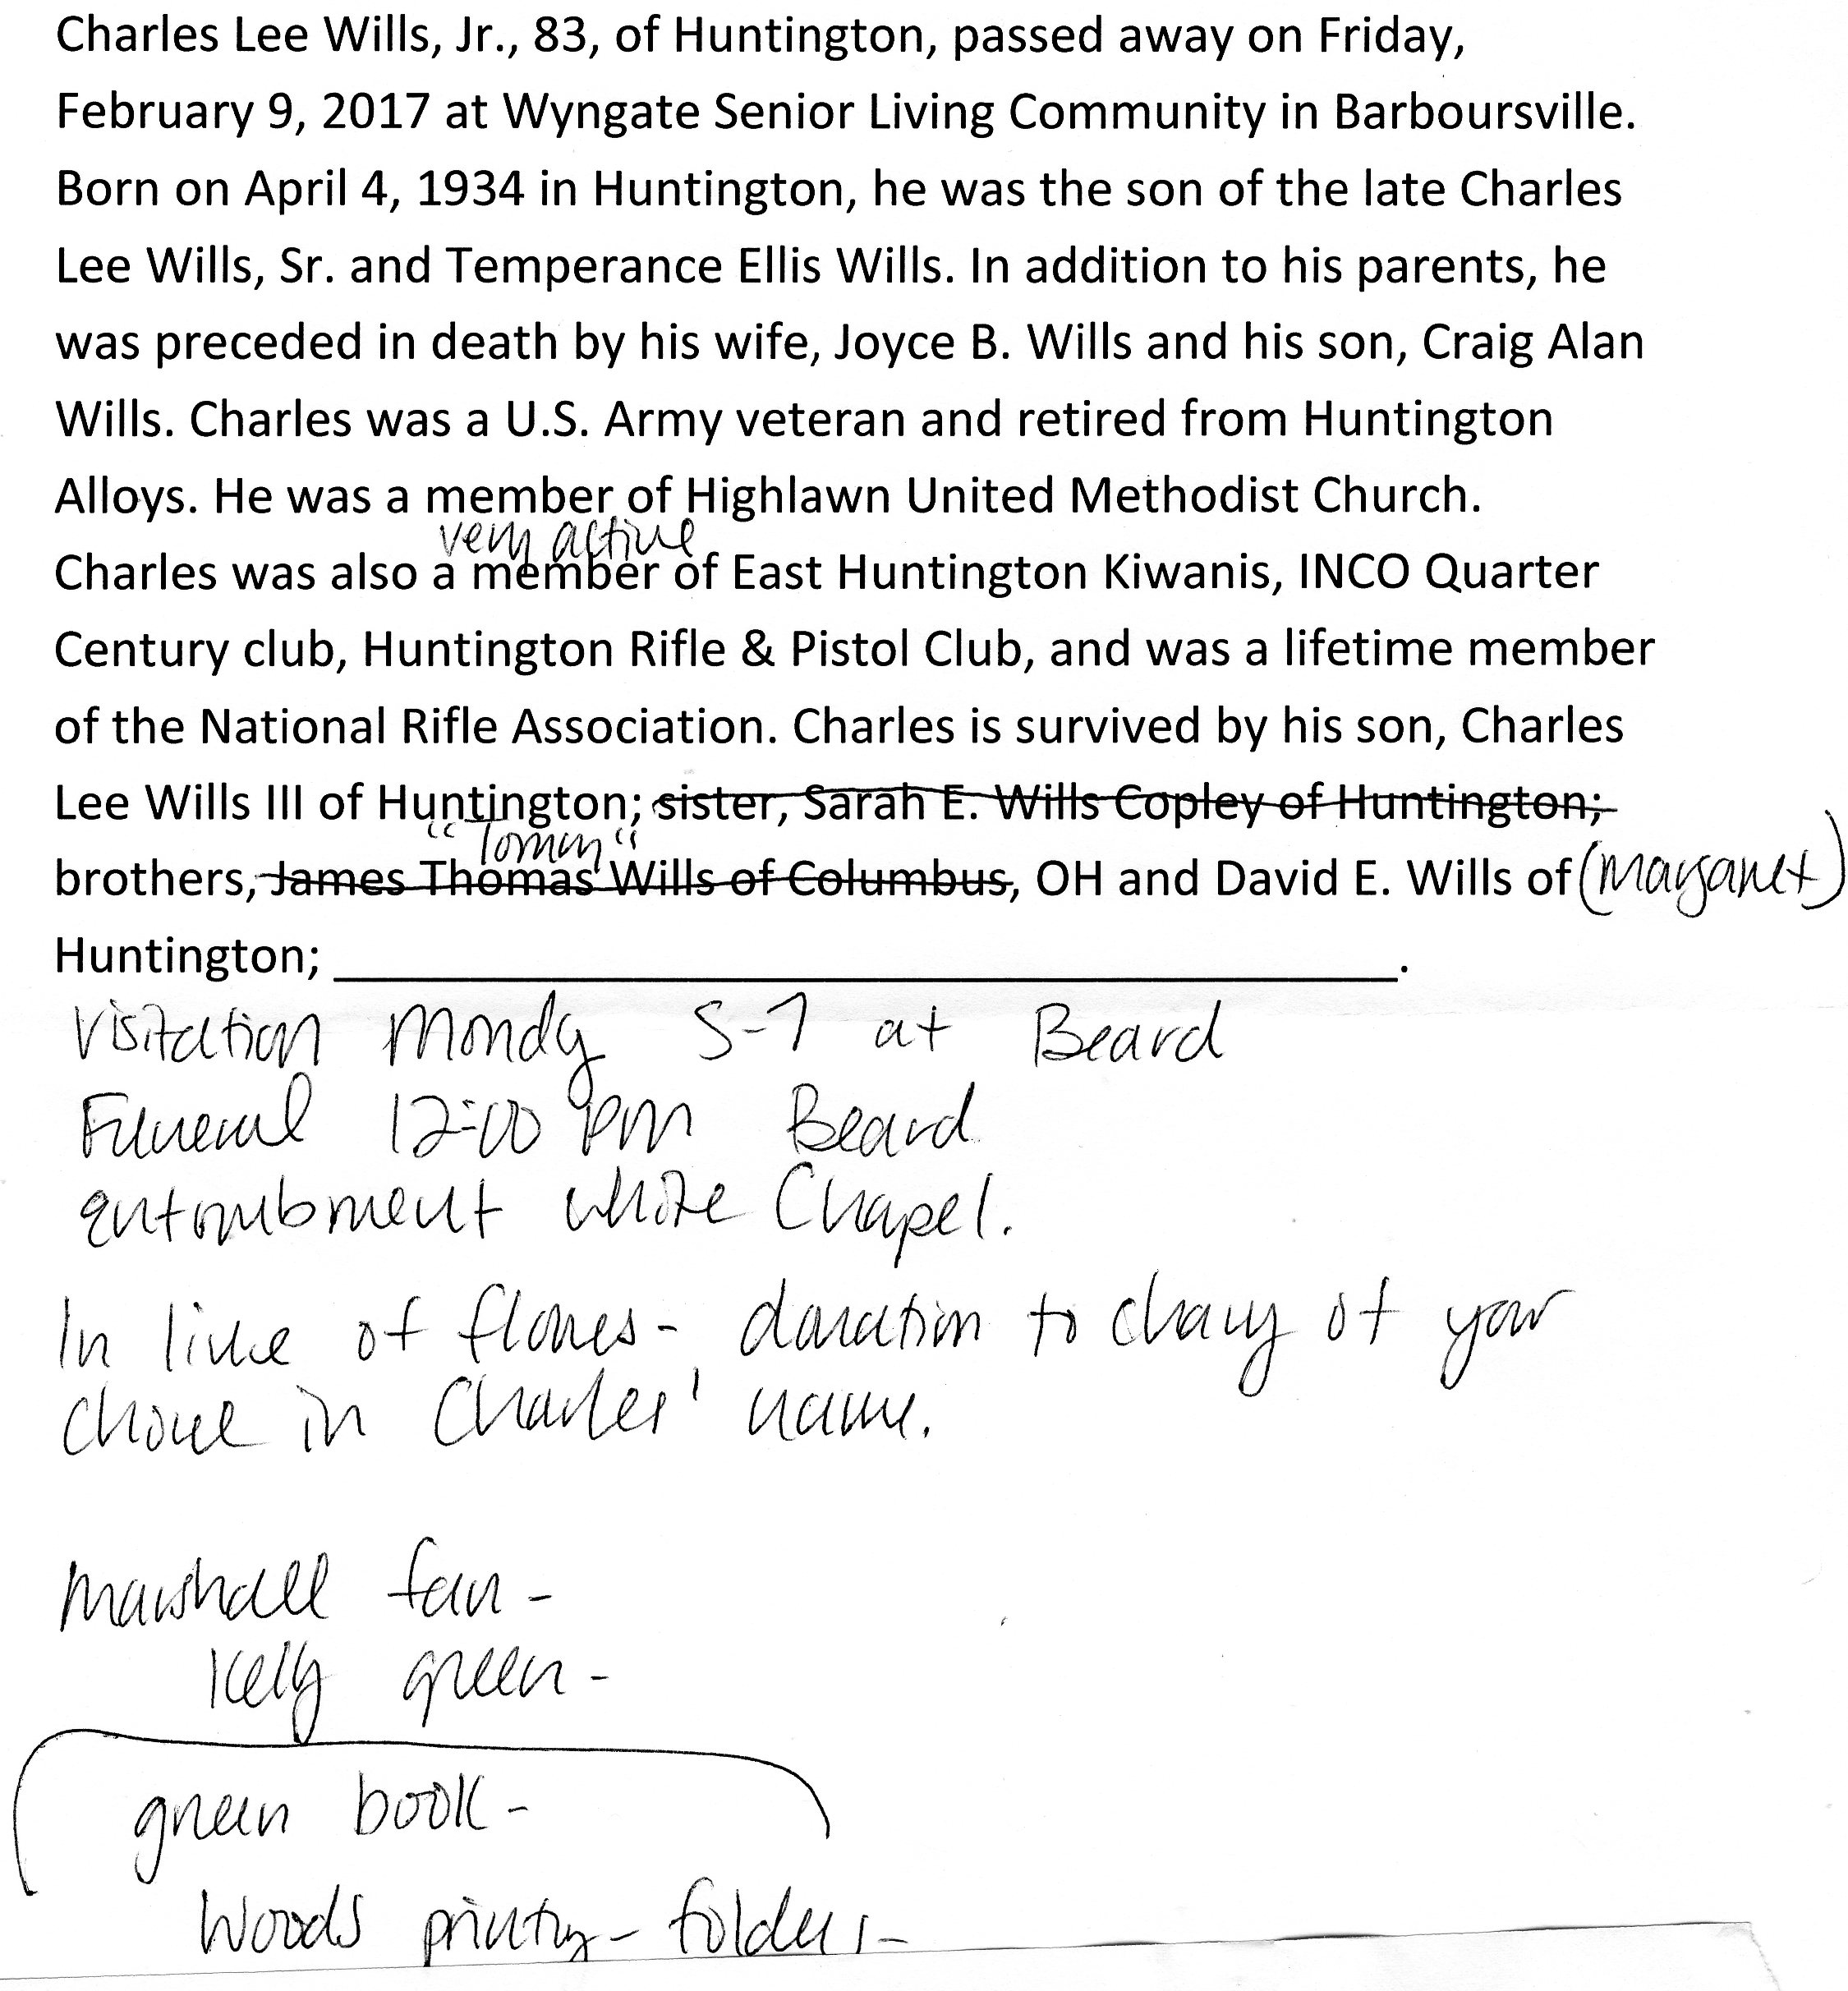 Charles Lee Wills, Jr., 83, of Huntington, passed away on Friday,
February 9, 2017 at Wyngate Senior Living Community in Barboursville.
Born on April 4, 1934 in Huntington, he was the son of the late Charles
Lee Wills, Sr. and Temperance Ellis Wills. In addition to his parents, he
was preceded in death by his wife, Joyce B. Wills and his son, Craig Alan
Wills. Charles was a U.S. Army veteran and retired from Huntington
Alloys. He was a member of Highlawn United Methodist Church.
very active
Charles was also a member of East Huntington Kiwanis, INCO Quarter
Century club, Huntington Rifle & Pistol Club, and was a lifetime member
of the National Rifle Association. Charles is survived by his son, Charles
Lee Wills III of Huntington; sister, Sarah E. Wills Copley of Huntington;
"Tommy"
brothers, James Thomas Wills of Columbus, OH and David E. Wills of (Margaret)
Huntington; ____________________.
Visitation Monday 5-7 at Beard
Funeral 12:00 pm Beard
entombment White Chapel.
In liue of flowers - donation to charity of your
choice in Charles' name.
Marshall fan -
Kelly green -
green book -
Woods printing - folders -